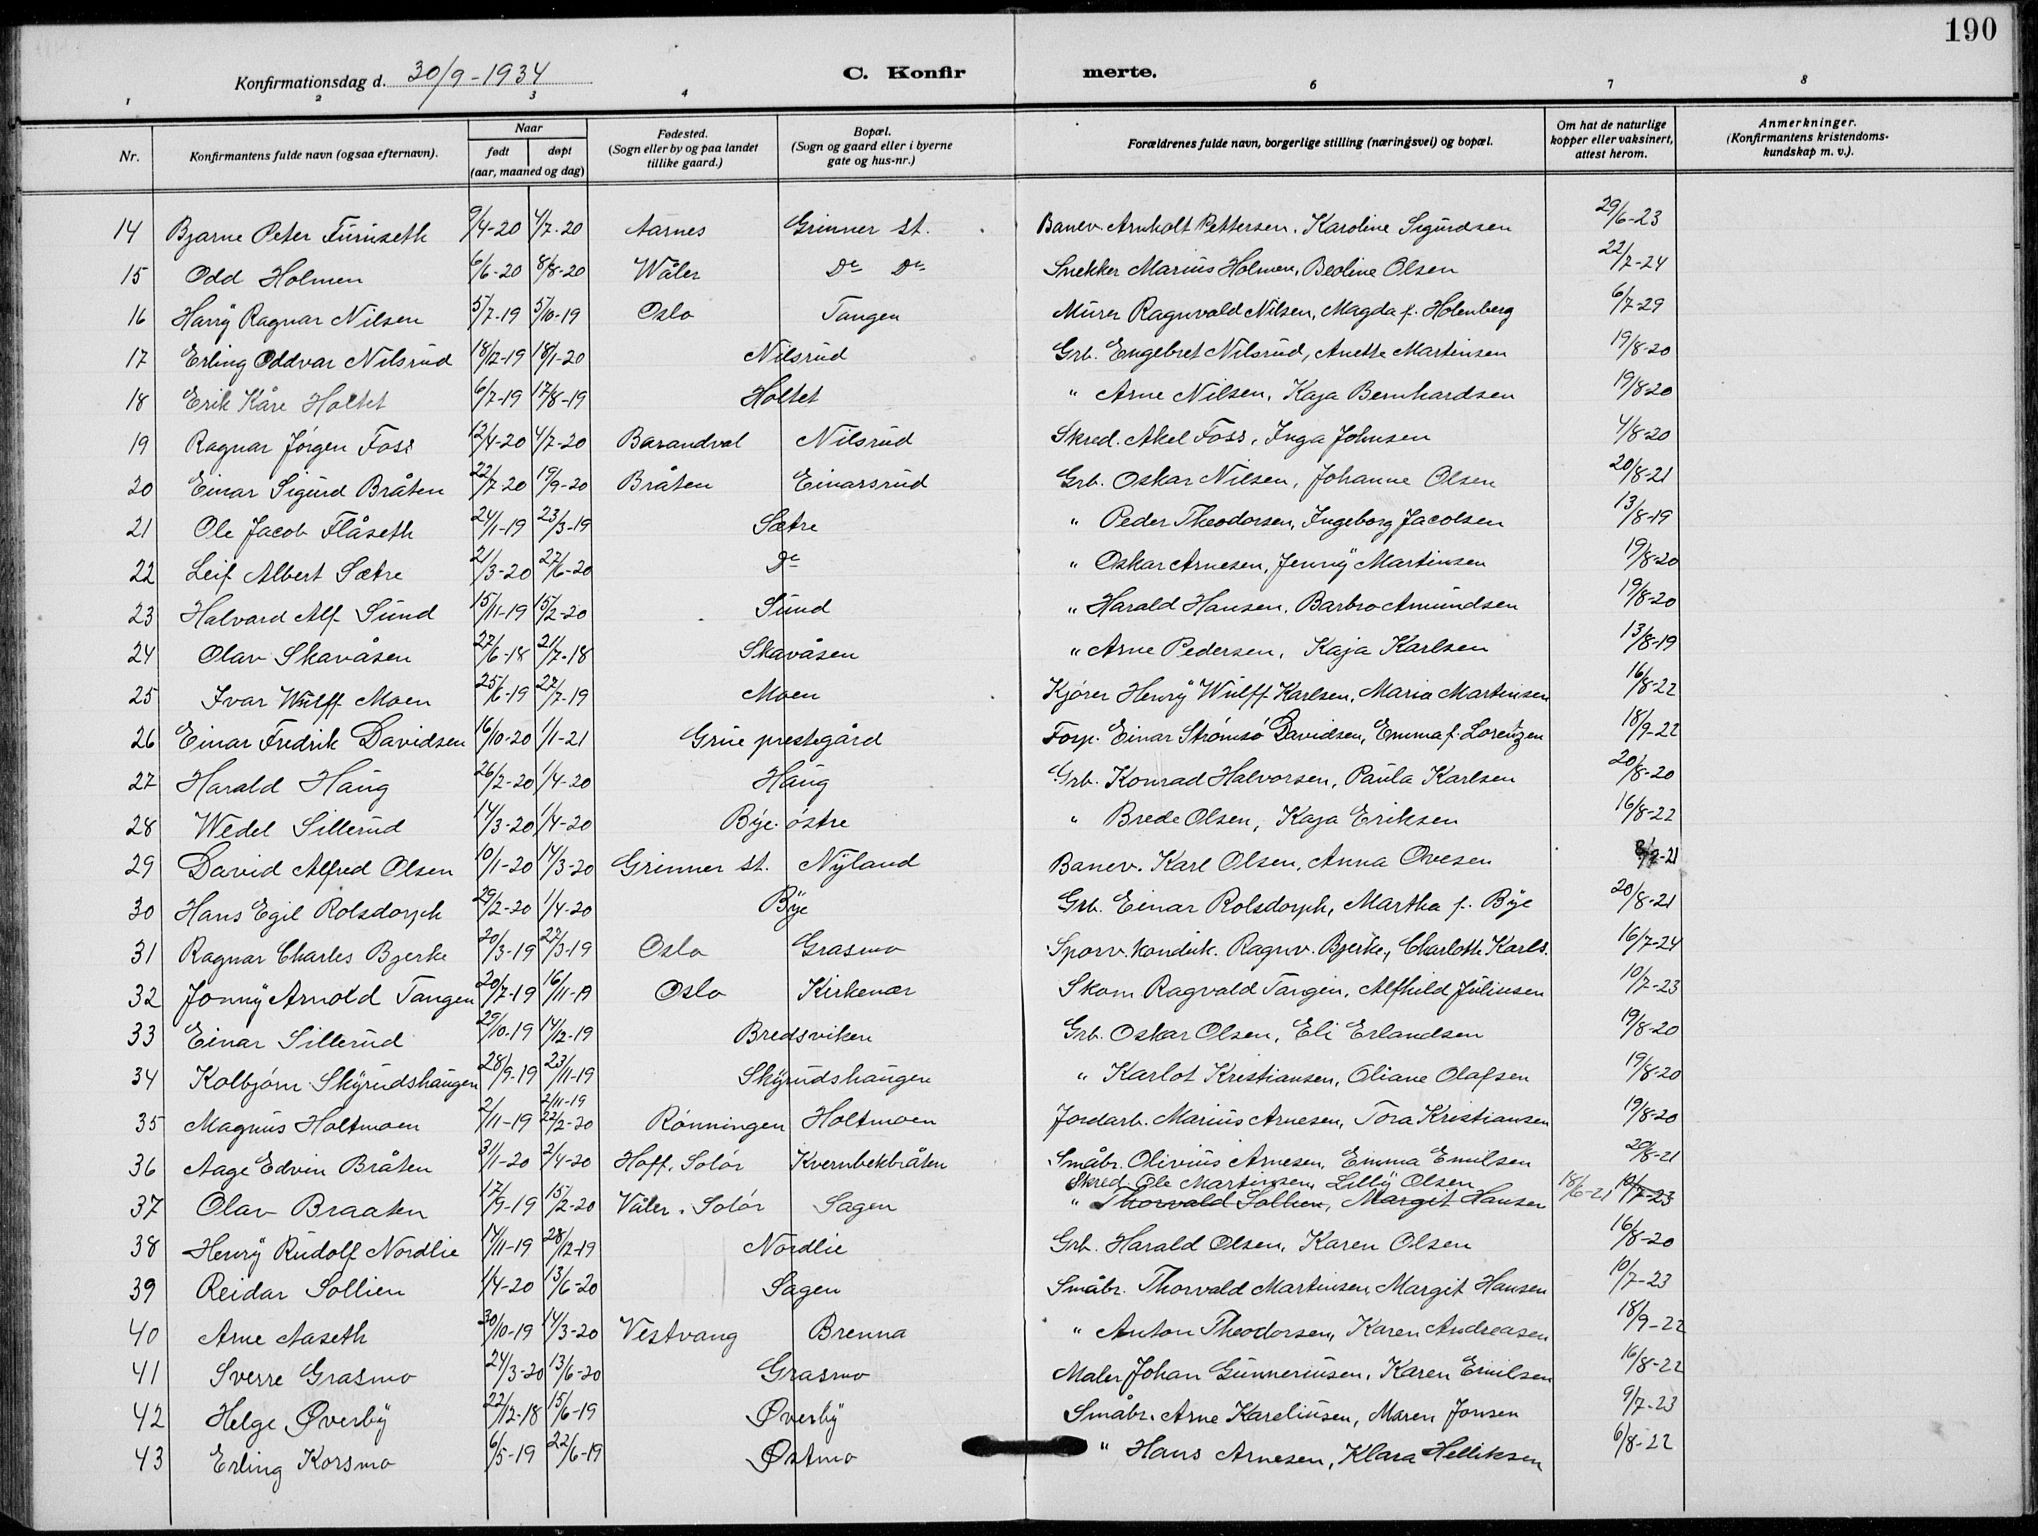 190
Konfirmationsdag d. 30/9-1934 C. Konfir merte.
1 2 3 4 6 7 8
Nr. Konfirmantens fulde navn (ogsaa efternavn). Naar født døpt (aar, maaned og dag) Fødested. (Sogn eller by og paa landet tillike gaard.) Bopæl. (Sogn og gaard eller i byerne gate og hus-nr.) Forældrenes fulde navn, borgerlige stilling (næringsvei) og bopæl. Om hat de naturlige kopper eller vaksinert, attest herom. Anmerkninger. (Konfirmantens kristendoms-kundskap m. v.).
14 Bjarne Peter Furuseth 9/4-20 4/7-20 Aarnes Grinner st. Banev. Arnholt Pettersen. Karoline Sigurdsen 29/6-23
15 Odd Holmen 6/6-20 8/8-20 Wåler Do Do Snekker Marius Holmen, Beoline Olsen 22/7-24
16 Harry Ragnar Nilsen 5/7-19 5/10-19 Oslo Tangen Murer Ragnvald Nilsen, Magda f. Holenberg 6/7-29
17 Erling Oddvar Nilsrud 18/12-19 18/1-20 Nilsrud Grb. Engebret Nilsrud, Anette Martinsen 19/8-20
18 Erik Kåre Holtet 6/7-19 17/8-19 Holtet " Arne Nilsen, Kaja Bernhardsen 19/8-20
19 Ragnar Jørgen Foss 12/4-20 4/7-20 Barandval Nilsrud Skred. Akel Foss, Inga Johnsen 4/8-20
20 Einar Sigurd Bråten 22/7-20 19/9-20 Bråten Einarsrud Grb. Oskar Nilsen, Johanne Olsen 20/8-21
21 Ole Jacob Flåseth 24/1-19 23/3-19 Sætre " Peder Theodorsen, Ingeborg Jacobsen 13/8-19
22 Leif Albert Sætre 21/3-20 27/6-20 Do " Oskar Arnesen, Jenny Martinsen 19/8-20
23 Halvard Alf Sund 15/11-19 15/2-20 Sund " Harald Hansen, Barbro Amundsen 19/8-20
24 Olav Skavåsen 27/6-18 21/7-18 Skavåsen " Arne Pedersen, Kaja Karlsen 13/8-19
25 Ivar Wulff Moen 25/6-19 27/7-19 Moen Kjører Henry Wulff Karlsen, Maria Martinsen 16/8-22
26 Einar Fredrik Davidsen 16/10-20 1/1-21 Grue prestegård Forp. Einar Strømsø Davidsen, Emma f. Lorentzen 18/9-22
27 Harald Haug 26/2-20 1/4-20 Haug Grb. Konrad Halvorsen, Paula Karlsen 20/8-20
28 Wedel Sillerud 14/3-20 1/4-20 Bye østre " Brede Olsen, Kaja Eriksen 16/8-22
29 David Alfred Olsen 10/1-20 14/3-20 Grinner st. Nyland Banev. Karl Olsen, Anna Ovesen -21
30 Hans Egil Rolsdorph 29/2-20 1/4-20 Bye Grb. Einar Rolsdorph, Martha f. Bye 20/8-21
31 Ragnar Charles Bjerke 20/3-19 22/3-19 Oslo Grasmo Sporv. konduk. Ragnv. Bjerke, Charlotte Karls. 16/7-24
32 Jonny Arnold Tangen 20/7-19 16/11-19 Oslo Kirkenær Skom Ragvald Tangen, Alfhild Juliusen 10/7-23
33 Einar Sillerud 29/10-19 14/12-19 Bredsviken Grb. Oskar Olsen, Eli Erlandsen 19/8-20
34 Kolbjørn Skyrudshaugen 28/9-19 23/11-19 Skyrudshaugen " Karlot Kristiansen, Oliane Olafsen 19/8-20
2/11-19
35 Magnus Holtmoen 2/11-19 22/2-20 Rønningen Holtmoen Jordarb. Marius Arnesen, Tora Kristiansen 19/8-20
36 Aage Edvin Bråten 31/1-20 2/4-20 Hoff. Solør Kvernbekbråten Småbr. Olivius Arnesen, Emma Emilsen 20/8-21
Skred Ole Martinsen, Lilly Olsen
37 Olav Braaten 17/9-19 15/2-20 Våler. Solør Sagen " Thorvald Sollien, Margit Hansen 18/6-21 10/7-23
38 Henry Rudolf Nordlie 17/11-19 28/12-19 Nordlie Grb. Harald Olsen, Karen Olsen 16/8-20
39 Reidar Sollien 1/4-20 13/6-20 Sagen Småbr. Thorvald Martinsen, Margit Hansen 10/7-23
40 Arne Naseth 30/10-19 14/3-20 Vestvang Brenna " Anton Theodorsen, Karen Andreasen 18/9-22
41 Sverre Grasmo 24/3-20 13/6-20 Grasmo Maler Johan Gunneriusen, Karen Emilsen 16/8-22
42 Helge Øverby 22/12-18 15/6-19 Øverby Småbr. Arne Kareliusen, Maren Jonsen 9/7-23
43 Erling Korsmo 6/5-19 22/6-19 Østmo " Hans Arnesen, Klara Helliksen 6/8-22